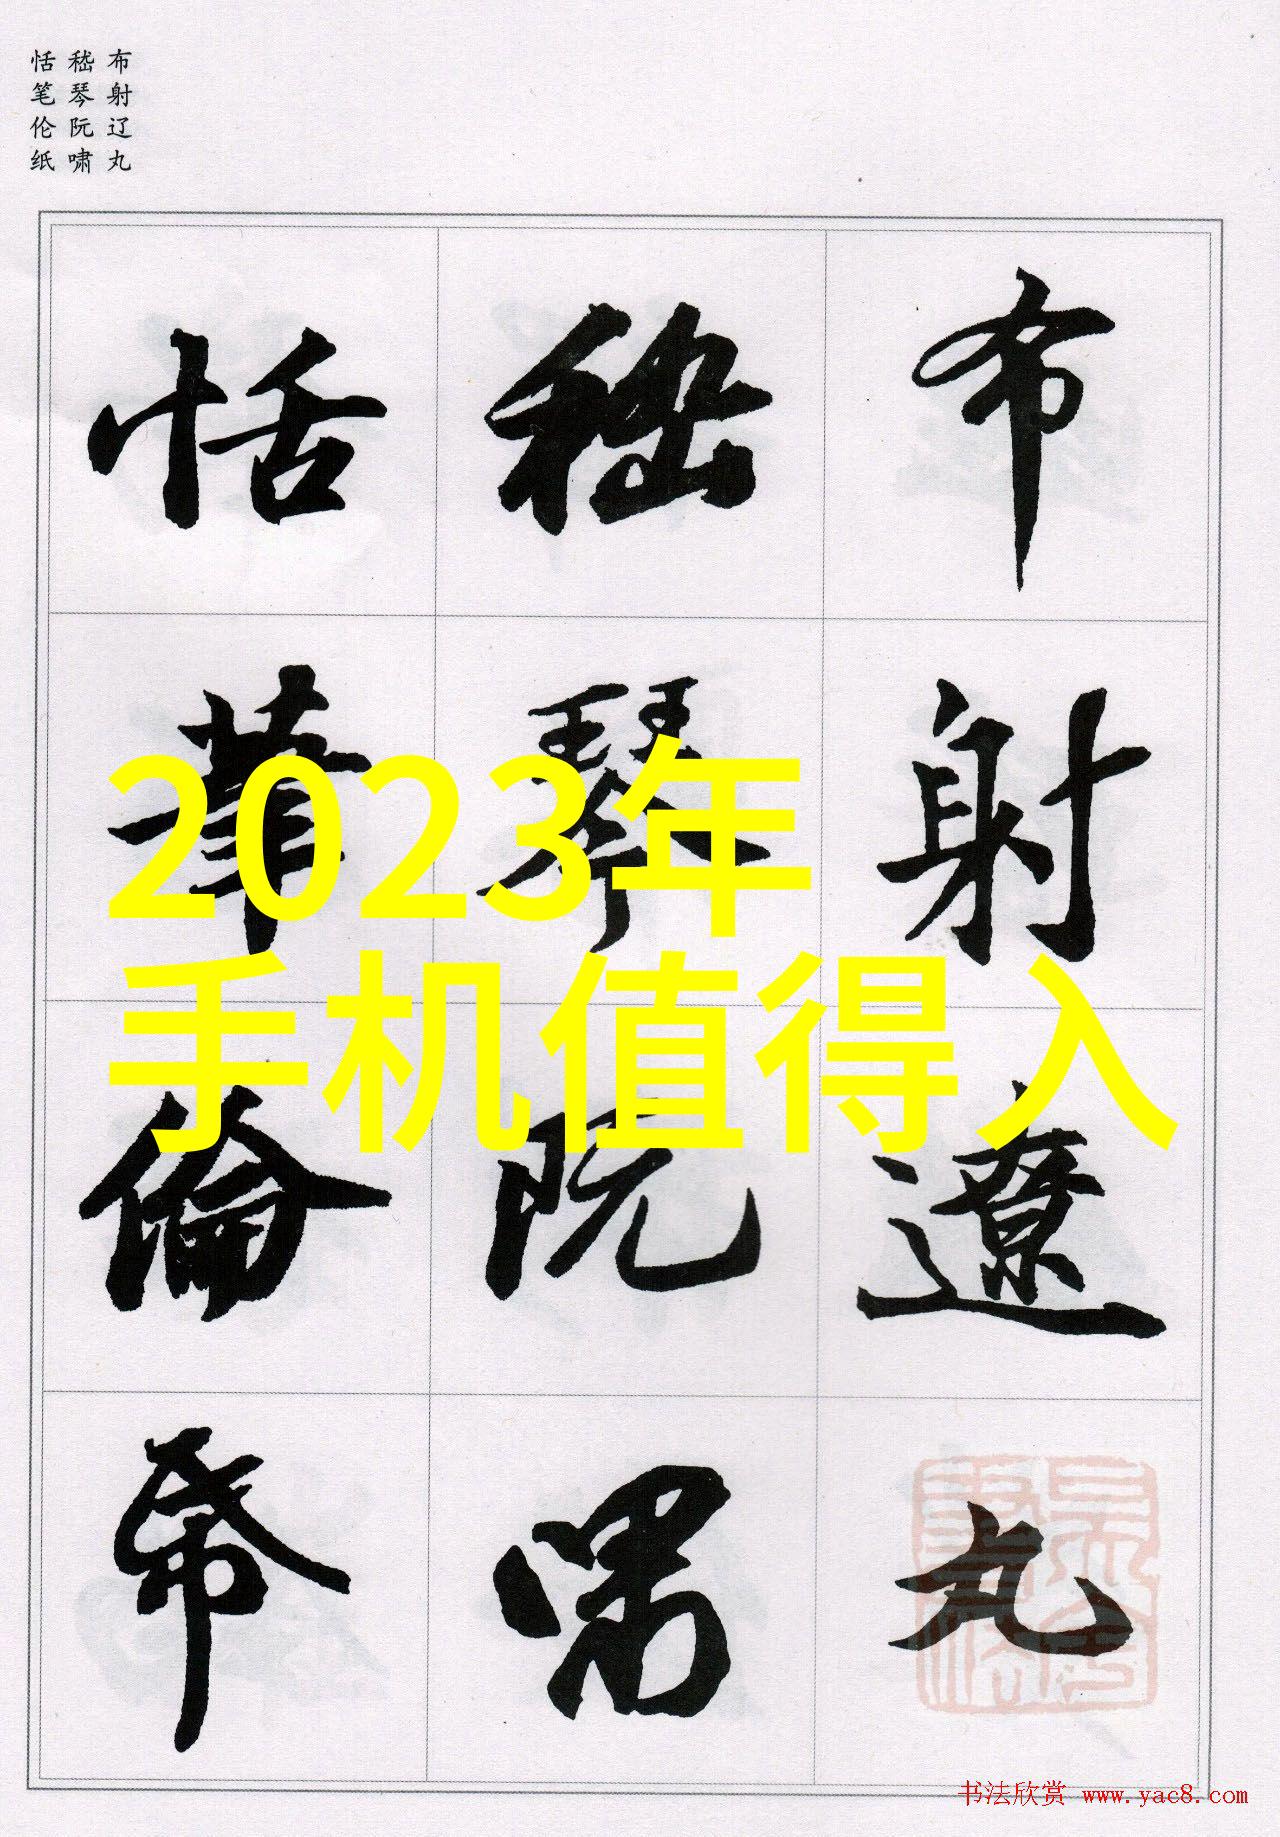 布射辽丸
嵇琴阮啸
恬笔伦纸
布射遼丸
嵇琴阮嘯
恬筆倫帋
2023年
手机值得入
书法欣赏 www.yac8.com